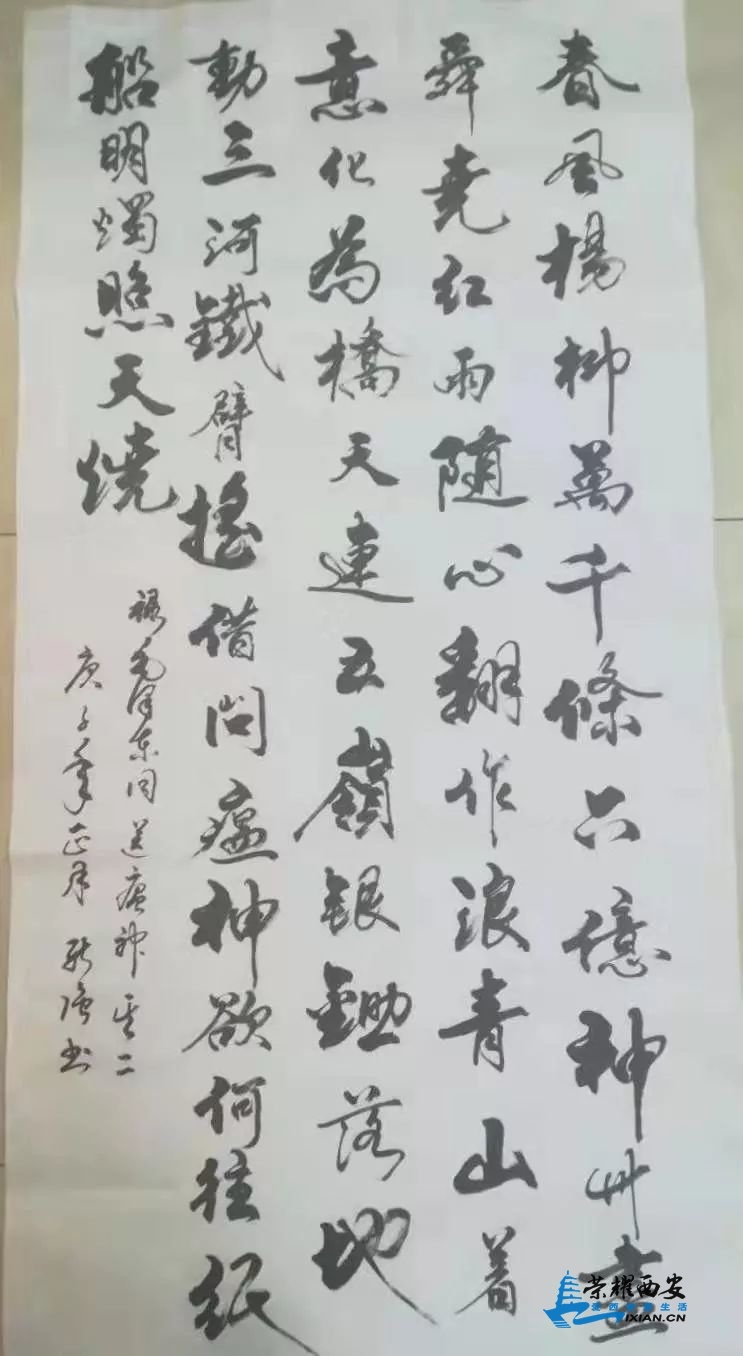 春風楊柳萬千條六億神州盡
舜堯紅雨随心翻作浪青山着
意化為橋天連五嶺银鋤落地
動三河鐵臂搖借問瘟神欲何往紙
船明燭照天燒
録毛泽东同送瘟神其二
庚子年正月书
荣耀西安
生活
IXIAN.CN